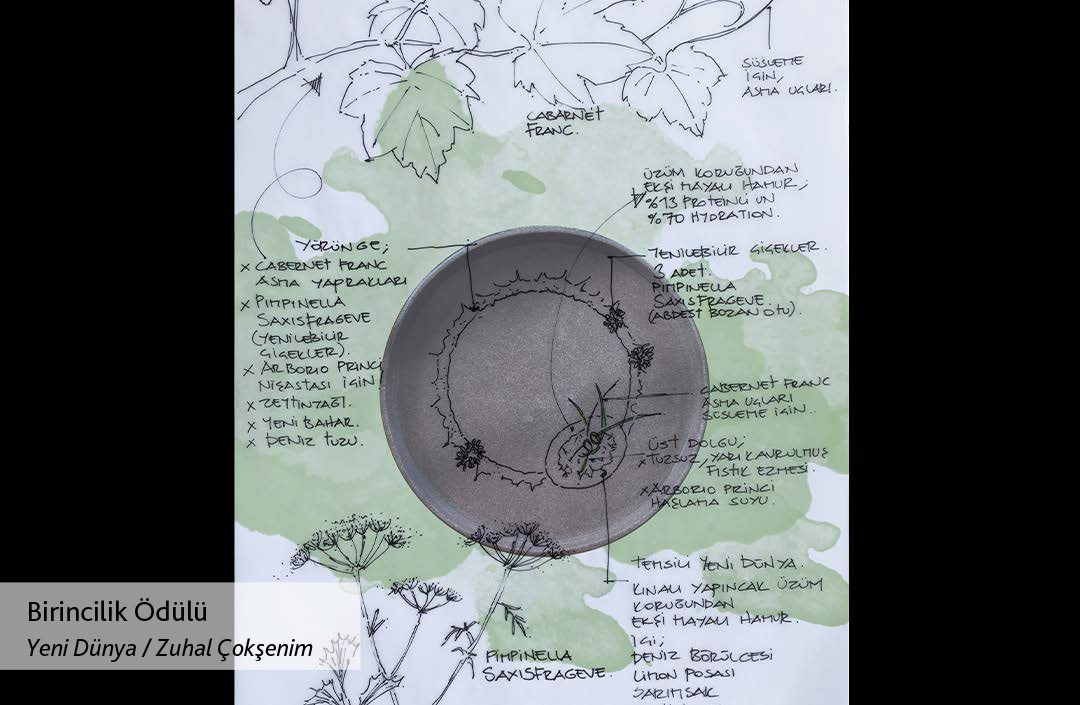 SÜSLEME
İÇİN,
ASMA UÇLARI.
CABARNET
FRANC.
ÜZÜM KORUĞUNDAN
EKŞİ MAYALI HAMUR;
%13 PROTEİNLİ UN
%70 HYDRATION.
YÖRÜNGE;
x CABERNET FRANC
ASMA YAPRAKLARI
x PIMPINELLA
SAXISFRAGEVE
(YENİLEBİLİR
ÇİÇEKLER).
x ARBORIO PRİNCİ
NİŞASTASI İÇİN
x ZEYTİNYAĞI.
x YENİ BAHAR.
x DENİZ TUZU.
YENİLEBİLİR ÇİÇEKLER.
3 ADET.
PIMPINELLA
SAXISFRAGEVE
(ABDEST BOZAN OTU).
CABERNET FRANC
ASMA UÇLARI
SÜSLEME İÇİN..
ÜST DOLGU;
x TUZSUZ, YARI KAVRULMUŞ
FISTIK EZMESİ.
x ARBORIO PRİNCİ
HAŞLAMA SUYU.
TEMSİLİ YENİ DÜNYA.
KINALI YAPINCAK ÜZÜM
KORUĞUNDAN
EKŞİ MAYALI HAMUR.
İÇİ;
DENİZ BÖRÜLCESİ
LİMON POSASI
SARIMSAK
PIMPINELLA
SAXISFRAGEVE.
Birincilik Ödülü
Yeni Dünya / Zuhal Çokşenim